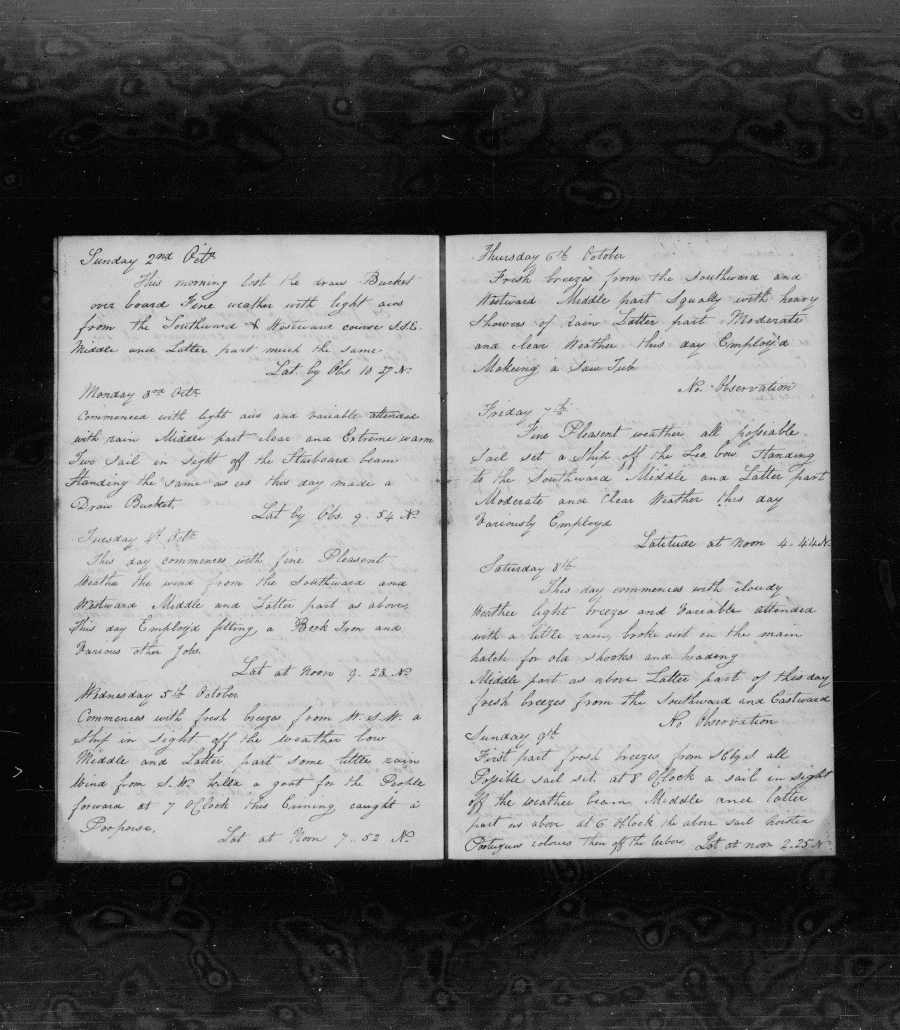 Sunday 2nd Octr
This morning lost the draw Bucket
over board Fine weather with light airs
from the Southward & Westward course S.S.E.
Middle and Latter part much the same
Lat. by Obs 10 27 N.
Monday 3rd Octr
Commences with light airs and variable attended
with rain Middle part clear and Extreme warm
Two sail in sight off the Starboard beam
Standing the same as us this day made a
Draw Bucket,
Lat by Obs. 9. 54 N.
Tuesday 4th Octr
This day commences with fine Pleasent
Weather the wind from the Southward and
Westward Middle and Latter part as above,
This day Employ'd fitting a Beck Iron and
Various other Jobs.
Lat at Noon 9. 23 N.
Wednesday 5th October
Commences with fresh breezes from W.S.W. a
Ship in Sight off the weather bow
Middle and Latter part some little rain
Wind from S.W. kill'd a goat for the People
forward at 7 OClock this Evening caught a
Poopoise.
Lat at Noon 7. 52 N.
Thursday 6th October
Fresh breezes from the Southward and
Westward Middle part Squally with heavy
Showers of rain Latter part Moderate
and clear Weather this day Employ'd
Makeing a Saw Tub
No. Observation
Friday 7th
Fine Pleasent weather all possiable
Sail set a Ship off the Lee bow Standing
to the Southward Middle and Latter part
Moderate and Clear Weather this day
Variously Employd
Latitude at Noon 4. 44 N.
Saturday 8th
This day commences with cloudy
Weather light breezes and Variable attended
with a little rain, broke out in the main
hatch for old shooks and heading
Middle part as above Latter part of this day
fresh breezes from the Southward and Eastward
No Observation
Sunday 9th
First part fresh breezes from SEbyS. all
Possible sail set, at 8 OClock a sail in sight
off the weather beam Middle and latter
part as above at 6 OClock the above sail hoisted
Portugues colours then off the leebow. Lat at noon 2.25 N.